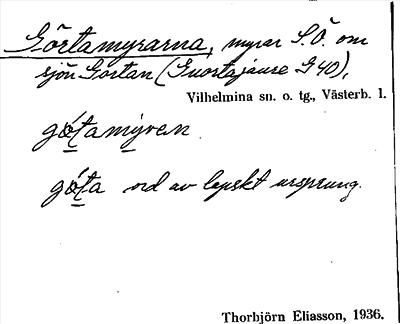 Görtamyrarna, myrar S.Ö. om
sjön Gortan (Guortajaure G 40),
Vilhelmina sn. o. tg., Västerb. l.
gó̱ṯamy̱ren
gó̱ṯa ord av lapskt ursprung.
Thorbjörn Eliasson, 1936.